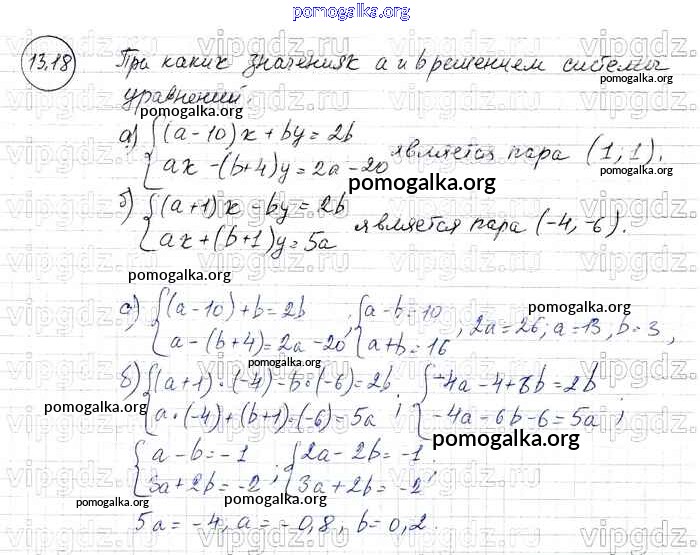 pomogalka.org
13.18 При каких значениях a и b решением системы
pomogalka.org
уравнений:
pomogalka.org
а) {(a-10)x+by=2b
ax-(b+4)y=2a-20 является пара (1; 1).
pomogalka.org
pomogalka.org
б) {(a+1)x-by=2b
ax+(b+1)y=5a является пара (-4, -6).
pomogalka.org
pomogalka.org
а) {(a-10)+b=2b
a-(b+4)=2a-20; {a-b=10
a+b=16, 2a=26; a=13, b=3,
pomogalka.org
pomogalka.org
б) {(a+1)·(-4)-b·(-6)=2b
a·(-4)+(b+1)·(-6)=5a; {-4a-4+8b=2b
-4a-6b-6=5a;
pomogalka.org
pomogalka.org
{a-b=-1
3a+2b=-2; {2a-2b=-1
3a+2b=-2;
pomogalka.org
pomogalka.org
5a=-4, a=-0,8, b=0,2.